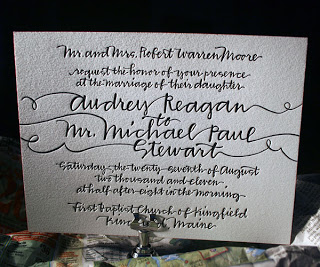 Mr. and Mrs. Robert Warren Moore
request the honor of your presence
at the marriage of their daughter
Audrey Reagan
to
Mr. Michael Paul
Stewart
Saturday, the twenty-seventh of August
two thousand and eleven,
at half after eight in the morning
First Baptist Church of Kingfield
Maine